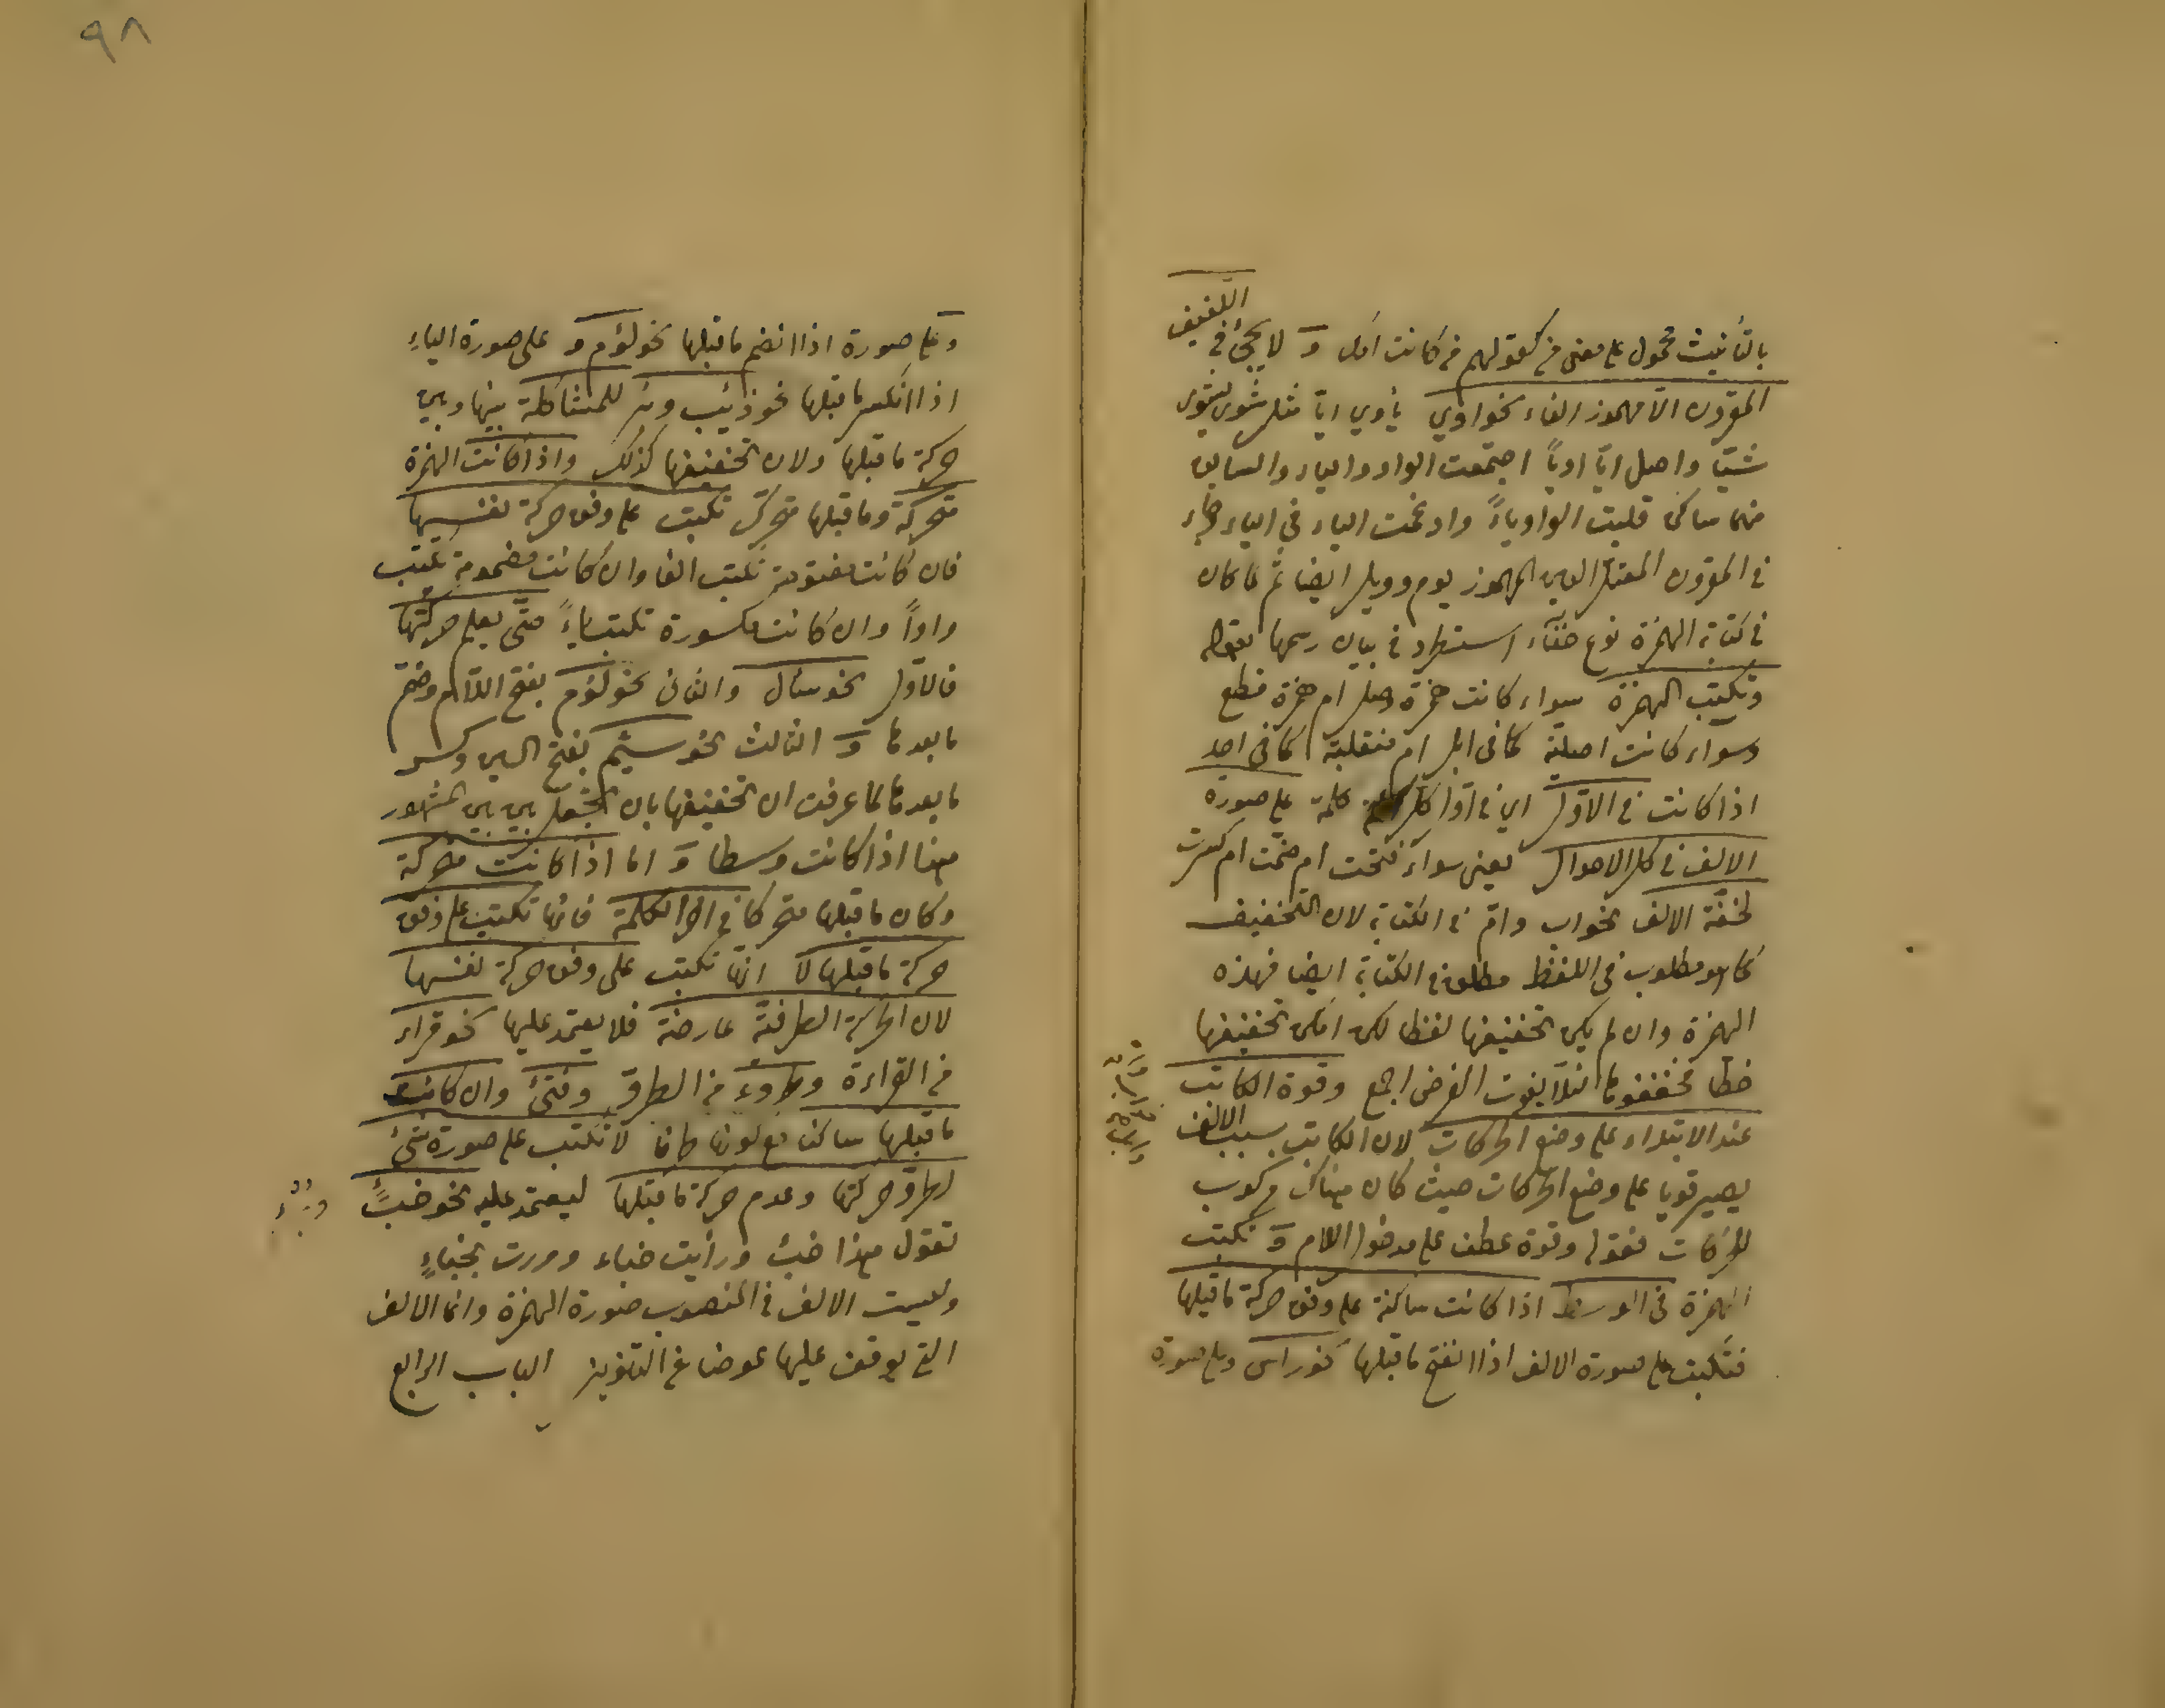 بالتأنيث محمول على معنى من كقولهم من كانت امك و لا يجئ في اللفيف
المقرون الا مهموز الفاء نحو اوي يأوي ايّا مثل شوى يشوى
شيّا واصل ايّا اويًا اجتمعت الواو والياء والسابق
منهما ساكن قلبت الواو ياءً وادغمت الياء في الياء وجاء
في المقرون المعتل العين المهموز يوم وويل ايضا ثم لما كان
في كتابة الهمزة نوع خفاء استطرد في بيان رسمها بقوله
وتكتب الهمزة سواء كانت همزة وصل ام همزة قطع
وسواء كانت اصلية كما في ابل ام منقلبة كما في احد
اذا كانت في الاول اي في اول كل كلمة على صورة
الالف في كل الاحوال يعنى سواء فتحت ام ضمت ام كسرت
لخفة الالف نحو اب وام في الكتابة لان التخفيف
كما هو مطلوب في اللفظ مطلوب في الكتابة ايضا فهذه
الهمزة وان لم يكن تخفيفها لفظا لكن امكن تخفيفها
خطا فخففوها لئلا يفوت الغرض اجمع وقوة الكاتب
عند الابتداء على وضع الحركات لان الكاتب بسبب الالف
يصير قويا على وضع الحركات حيث كان هناك مركوب
للحركات فقوله وقوة عطف على مدخول اللام و تكتب
الهمزة في الوسط اذا كانت ساكنة على وفق حركة ما قبلها
فتكتب على صورة الالف اذا انفتح ما قبلها نحو راس وعلى صورة
٩٨
وعلى صورة اذا انضم ما قبلها نحو لؤم و على صورة الياء
اذا انكسر ما قبلها نحو ذئب وبئر للمشاكلة بينها وبين
حركة ما قبلها ولان تخفيفها كذلك واذا كانت الهمزة
متحركة وما قبلها متحرك تكتب على وفق حركة نفسها
فان كانت مفتوحة تكتب الفا وان كانت مضمومة تكتب
واوًا وان كانت مكسورة تكتب ياءً حتى يعلم حركتها
فالاول نحو سأل والثانى نحو لؤم بفتح اللام وضم
ما بعدها و الثالث نحو سئم بفتح السين وكسر
ما بعدها لما عرفت ان تخفيفها بان تجعل بين بين المشهور
هذا اذا كانت وسطا و اما اذا كانت متحركة
وكان ما قبلها متحركا في اخر الكلمة فانها تكتب على وفق
حركة ما قبلها لا انها تكتب على وفق حركة نفسها
لان الحركة الطرفية عارضة فلا يعتمد عليها نحو قراء
من القراءة وطروء من الطرق وفتئ وان كانت
ما قبلها ساكن مع كونها طرفا لا تكتب على صورة شئ
لطرو حركتها وعدم حركة ما قبلها ليعتمد عليه نحو خبءٌ
تقول هذا خبء ورأيت خباء ومررت بخبءٍ
وليست الالف في المنصوب صورة الهمزة وانما الالف
التي يوقف عليها عوضا عن التنوين الباب الرابع